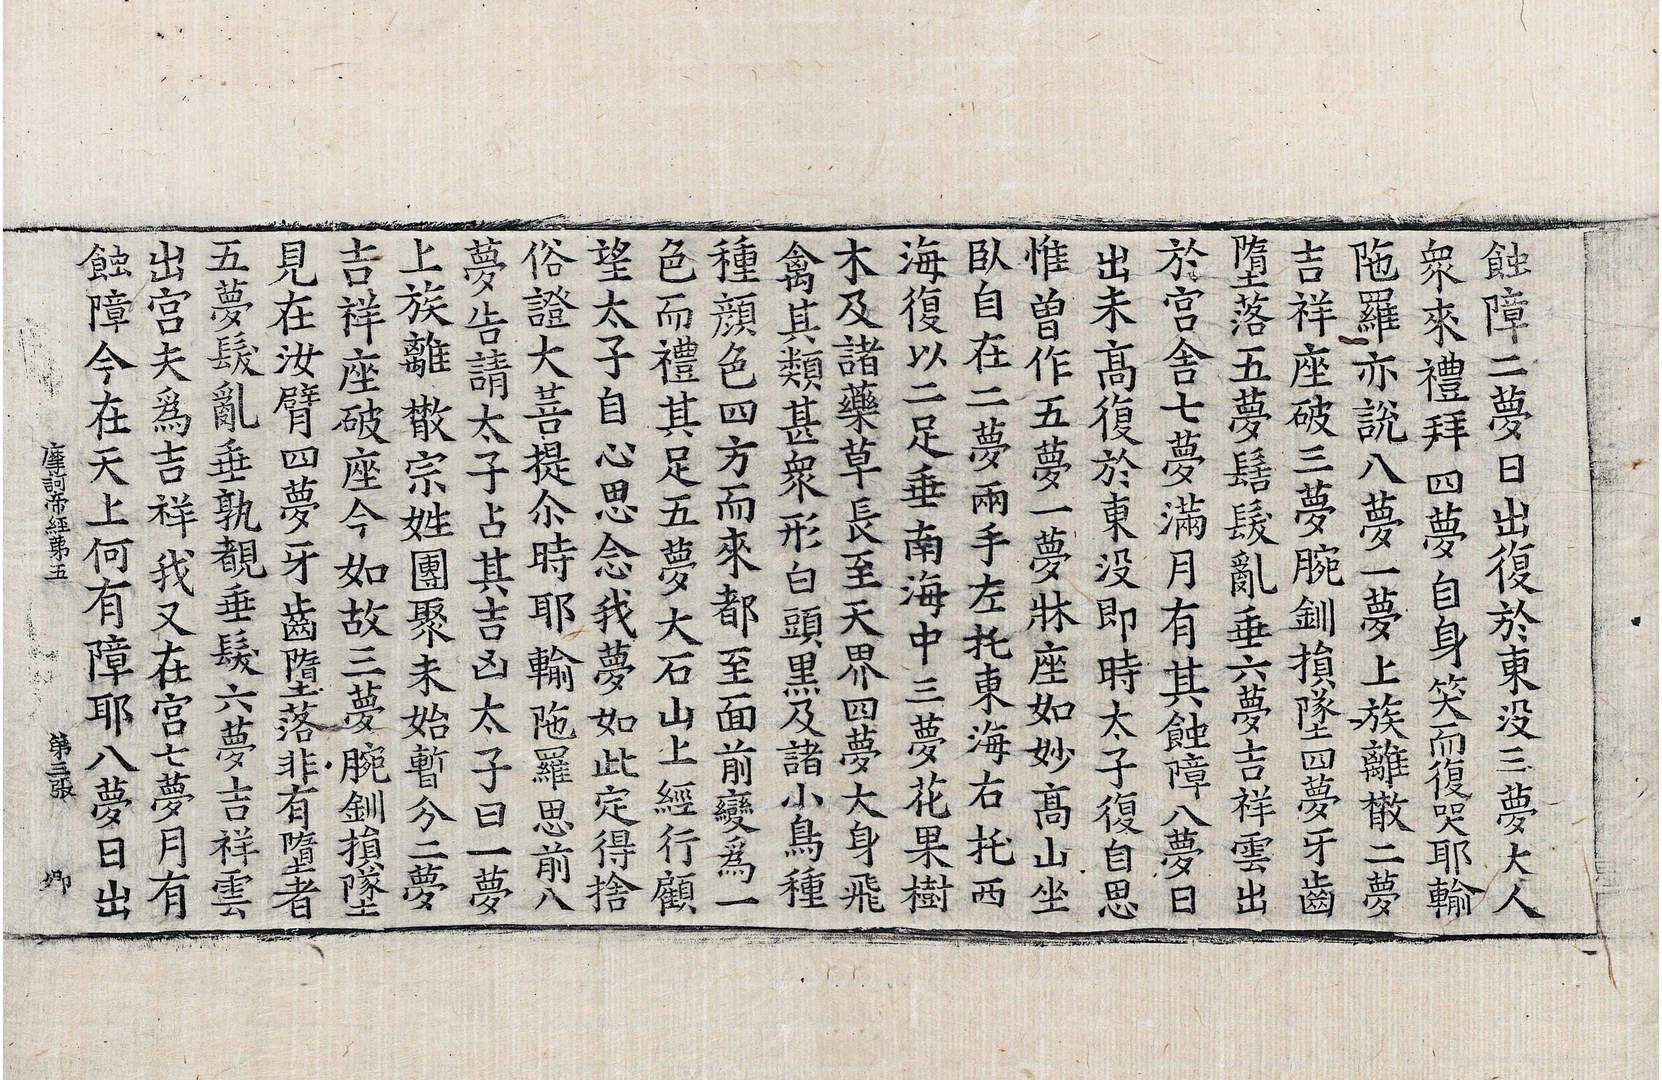 蝕障二夢日出復於東没三夢大人
衆來禮拜四夢自身笑而復哭耶輸
陁羅亦說八夢一夢上族離散二夢
吉祥座破三夢腕釧損墜四夢牙齒
墮落五夢鬅髮亂垂六夢吉祥雲出
於宮舍七夢滿月有其蝕障八夢日
出未高復於東没即時太子復自思
惟曽作五夢一夢牀座如妙高山坐
臥自在二夢兩手左托東海右托西
海復以二足垂南海中三夢花果樹
木及諸藥草長至天界四夢大身飛
禽其類甚衆形白頭黒及諸小鳥種
種顔色四方而來都至面前變爲一
色而禮其足五夢大石山上經行顧
望太子自心思念我夢如此定得捨
俗證大菩提尒時耶輸陁羅思前八
夢告請太子占其吉凶太子曰一夢
上族離散宗姓團聚未始暫分二夢
吉祥座破座今如故三夢腕釧損墜
見在汝臂四夢牙齒墮落非有墮者
五夢髮亂垂孰覩垂髮六夢吉祥雲
出宮夫爲吉祥我又在宮七夢月有
蝕障今在天上何有障耶八夢日出
摩訶帝經第五 第三張 卿